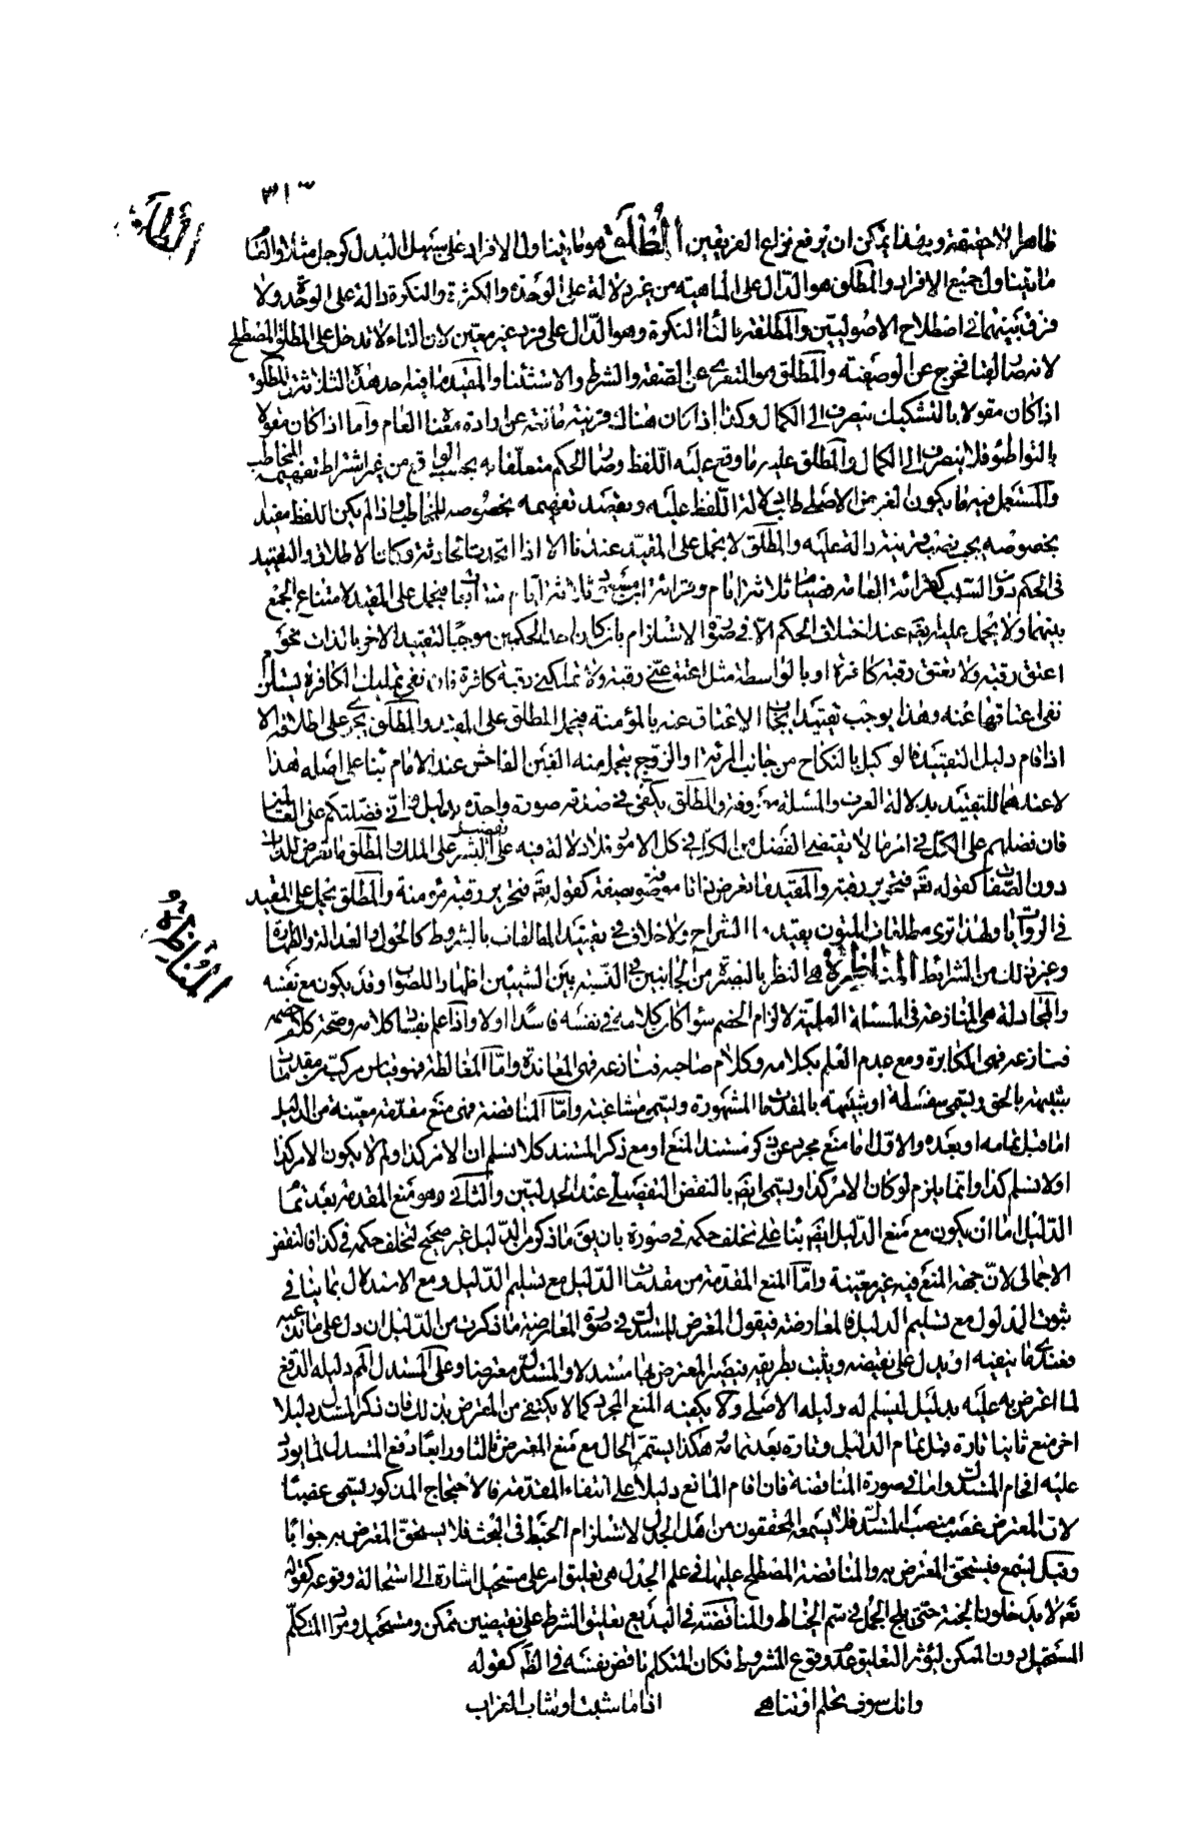 ٣١٣
المطلق
ظاهرا لا حقيقة وبهذا يمكن ان يرفع نزاع الفريقين المطلق هو ما يتناول الافراد على سبيل البدل كرجل مثلا والعام
ما يتناول جميع الافراد والمطلق هو الدال على الماهية من غير دلالة على الوحدة والكثرة والنكرة دالة على الوحدة ولا
فرق بينهما في اصطلاح الاصوليين والمطلقة بالتاء النكرة وهو الدال على فرد غير معين لان التاء لا تدخل على المطلق المصطلح
لانه صار لقبا فخرج عن الوصفية والمطلق هو المتعرى عن الصفة والشرط والاستثناء والمقيد ما فيه احد هذه الثلاثة والمطلق
اذا كان مقولا بالتشكيك ينصرف الى الكمال وكذا اذا كان هناك قرينة مانعة عن ارادة معناه العام واما اذا كان مقولا
بالتواطؤ فلا ينصرف الى الكمال والمطلق عليه ما وقع عليه اللفظ وصار الحكم متعلقا به بحسب الواقع من غير اشتراط تفهيمه المخاطب
والمستعمل فيه ما يكون الغرض الاصلي طلب دلالة اللفظ عليه ويقصد تفهيمه بخصوصه للمخاطب واذا لم يكن اللفظ مفيدا
بخصوصه يجب نصب قرينة دالة عليه والمطلق لا يحمل على المقيد عندنا الا اذا اتحدت الحادثة وكان الاطلاق والتقييد
في الحكم دون السبب كقراءة العامة فصيام ثلاثة ايام وقراءة ابن مسعود ثلاثة ايام متتابعات فيحمل على المقيد لامتناع الجمع
بينهما ولا يحمل عليه ايضا عند اختلاف الحكم الا في صورة الاستلزام بان كان احد الحكمين موجبا لتقييد الاخر بالذات نحو
اعتق رقبة ولا تعتق رقبة كافرة او بالواسطة مثل اعتق عني رقبة ولا تملكني رقبة كافرة فان نفي تمليك الكافرة يستلزم
نفي اعتاقها عنه وهذا يوجب تقييد ايجاب الاعتاق عنه بالمؤمنة فيحمل المطلق على المقيد والمطلق يجري على اطلاقه الا
اذا قام دليل التقييد فالوكيل بالنكاح من جانب المرئة او الزوج يتحمل منه الغبن الفاحش عند الامام بناء على اصله هذا
لا عندهما للتقييد بدلالة العرف والمسئلة معروفة والمطلق يكفي في صدقه صورة واحدة بدليل واني فضلتكم على العالمين
فان فضلهم على الكل في امر ما لا يقتضي الفضل من الكل في كل الامور فلا دلالة فيه على تفضيل البشر على الملك والمطلق ما تعرض للذات
دون الصفات كقوله تعم فتحرير رقبة والمقيد ما تعرض ذاتا موصوفة بصفة كقوله تعم فتحرير رقبة مؤمنة والمطلق يحمل على المقيد
في الروايات ولهذا ترى مطلقات المتون يقيدها الشراح ولا خلاف في تقييد المطلقات بالشروط كالحول والعدالة والطهارة
المناظرة
وغير ذلك من الشرائط المناظرة هي النظر بالبصيرة من الجانبين في النسبة بين الشيئين اظهارا للصواب وقد يكون مع نفسه
والمجادلة هي المنازعة في المسئلة العلمية لالزام الخصم سواء كان كلامه في نفسه فاسدا او لا واذا علم بفساد كلامه وصحة كلام خصمه
فنازعه فهي المكابرة ومع عدم العلم بكلامه وكلام صاحبه فنازعه فهي المعاندة واما المغالطة فهو قياس مركب من مقدمات
شبيهة بالحق ويسمى سفسطة او شبيهة بالمقدمات المشهورة ويسمى مشاغبة واما المناقضة فهي منع مقدمة معينة من الدليل
اما قبل تمامه او بعده والاول اما منع مجرد عن ذكر مستند المنع او مع ذكر المستند كلا نسلم ان الامر كذا ولم لا يكون الامر كذا
او لا نسلم كذا وانما يلزم لو كان الامر كذا ويسمى ايضا بالنقض التفصيلي عند الجدليين والثاني وهو منع المقدمة بعد تمام
الدليل اما ان يكون مع منع الدليل ايضا بناء على تخلف حكمه في صورة بان يقال ما ذكر من الدليل غير صحيح لتخلف حكمه في كذا فالنقض
الاجمالي لان جهة المنع فيه غير معينة واما المنع المقدمة من مقدمات الدليل مع تسليم الدليل ومع الاستدلال بما ينافي
ثبوت المدلول مع تسليم الدليل فالمعارضة فيقول المعترض للمستدل في صورة المعارضة ما ذكرت من الدليل ان دل على ما تدعيه
فعندي ما ينفيه او يدل على نقيضه ويثبت بطريقه فيصير المعترض بها مستدلا والمستدل معترضا وعلى المستدل الم دليله الدفع
لما اعترض به عليه بدليل ليسلم له دليله الاصلي ولا يكفيه المنع المجرد كما لا يكتفي من المعترض بذلك فان ذكر المستدل دليلا
اخر منع ثانيا تارة قبل تمام الدليل وتارة بعد تمامه وهكذا يستمر الحال مع منع المعترض ثالثا ورابعا ودفع المستدل لما يورد
عليه الى افحام المستدل واما في صورة المناقضة فان اقام المانع دليلا على انتفاء المقدمة فالاحتجاج المذكور يسمى غصبا
لان المعترض غصب منصب المستدل فلا يسمعه المحققون من اهل الجدل لاستلزام الخبط في البحث فلا يستحق المعترض به جوابا
وقيل يسمع فيستحق المعترض به والمناقضة المصطلح عليها في علم الجدل هي تعليق امر على مستحيل اشارة الى استحالة وقوعه كقوله
تعم لا يدخلون الجنة حتى يلج الجمل في سم الخياط والمناقضة في البديع تعليق الشرط على نقيضين ممكن ومستحيل ومراد المتكلم
المستحيل دون الممكن ليؤثر التعليق عدم وقوع المشروط فكان المتكلم ناقض نفسه في الظ كقوله
وانك سوف تحلم او تناهى اذا ما شبت او شاب الغراب